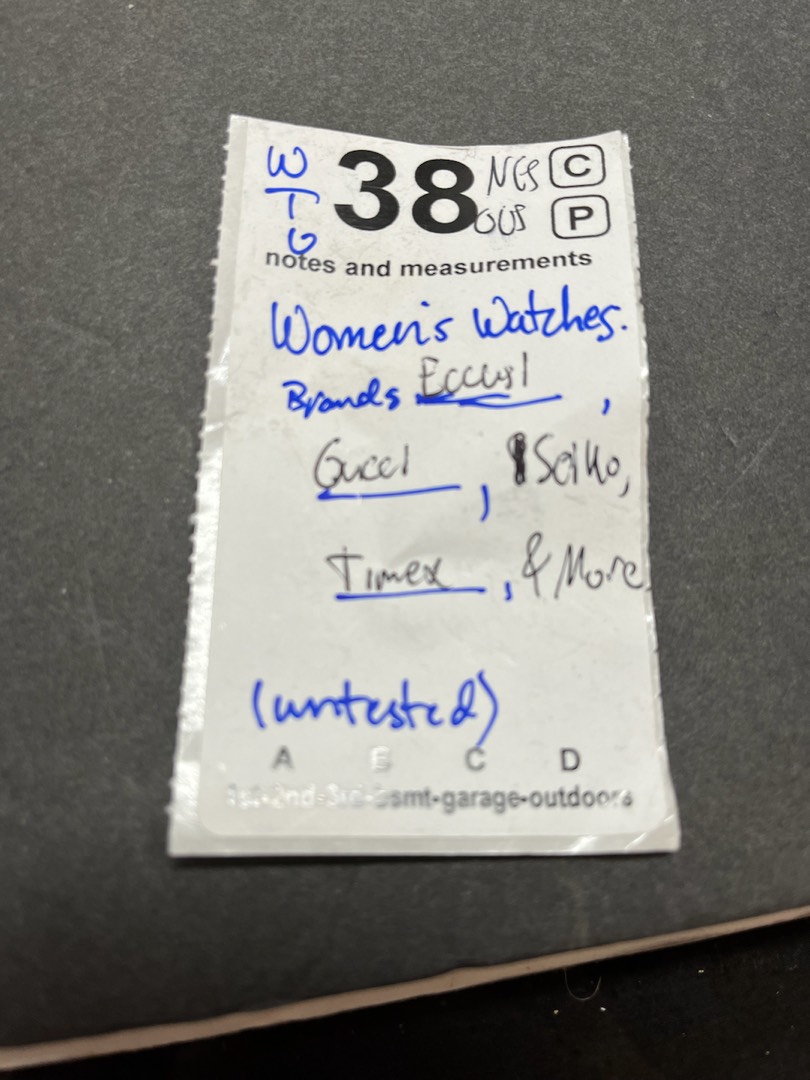 W
T 38 NGS C
G OUS P
notes and measurements
Women's Watches.
Brands Eccusl ,
Gucci , Seiko,
Timex , & More
(untested)
A B C D
1st-2nd-3rd-bsmt-garage-outdoors